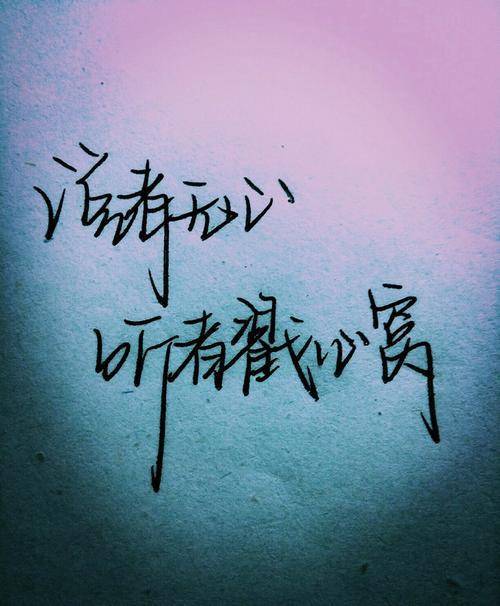 说者无心
听者戳心窝